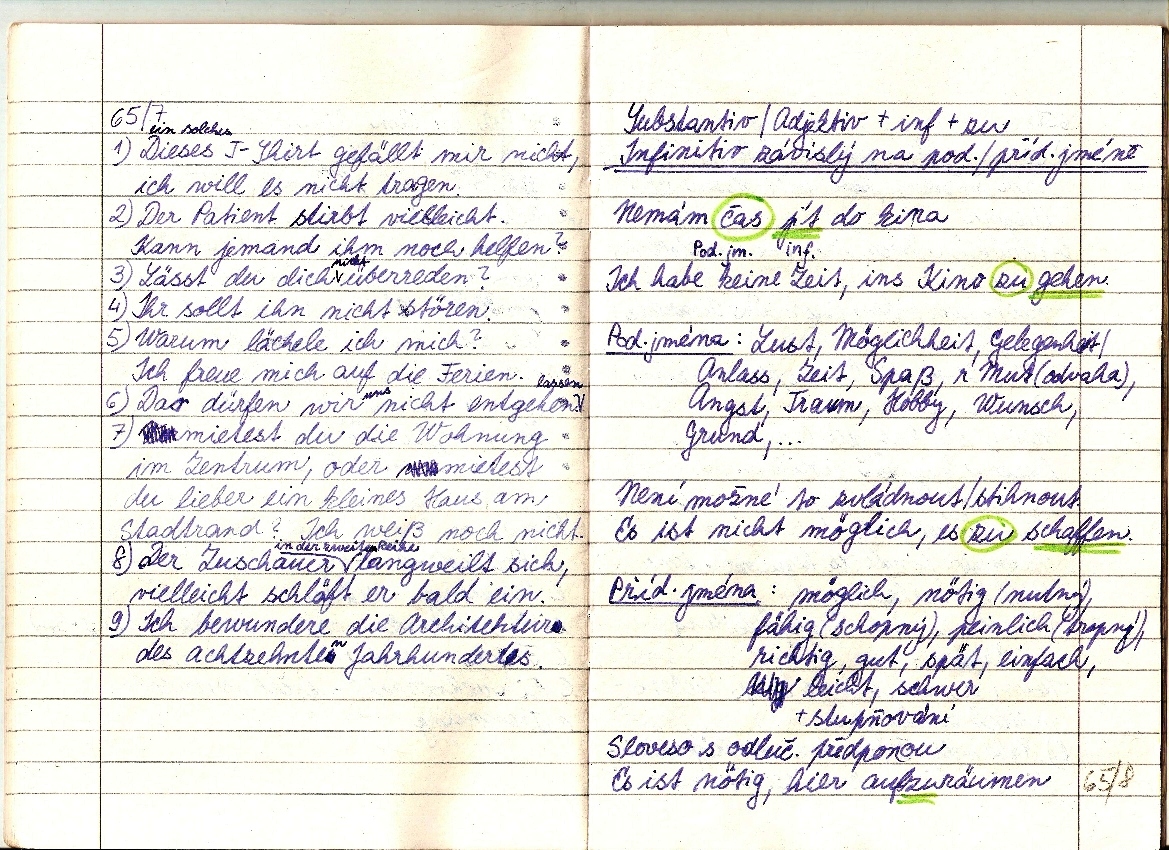 65/7
ein solches
1) Dieses T-Shirt gefällt mir nicht,
ich will es nicht tragen.
2) Der Patient stirbt vielleicht.
Kann jemand ihm noch helfen?
3) Lässt du dich nicht überreden?
4) Ihr sollt ihn nicht stören.
5) Warum lächele ich mich?
Ich freue mich auf die Ferien.
6) Das dürfen wir uns nicht entgehen lassen
7) mietest du die Wohnung
im Zentrum, oder mietest
du lieber ein kleines Haus am
Stadtrand? Ich weiß noch nicht.
in der zweiten Reihe
8) Der Zuschauer langweilt sich,
vielleicht schläft er bald ein.
9) Ich bewundere die Architektur
des achtzehnten Jahrhundertes.
Substantiv / Adjektiv + inf + zu
Infinitiv závislý na pod./příd. jméně
Nemám čas jít do kina
Pod. jm. inf.
Ich habe keine Zeit, ins Kino zu gehen.
Pod. jména: Lust, Möglichkeit, Gelegenheit/
Anlass, Zeit, Spaß, r Mut (odvaha),
Angst, Traum, Hobby, Wunsch,
Grund, ...
Není možné to zvládnout/stihnout
Es ist nicht möglich, es zu schaffen.
Příd. jména: möglich, nötig (nutný),
fähig (schopný), peinlich (trapný),
richtig, gut, spät, einfach,
leicht, schwer
+ stupňování
Sloveso s odluč. předponou
Es ist nötig, hier aufzuräumen
65/8